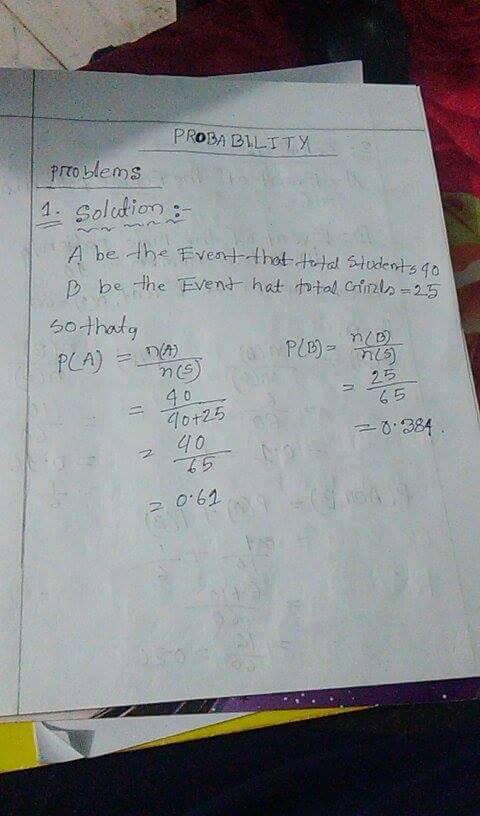 PROBABILITY
problems
1. Solution :-
A be the Event that total Students 40
B be the Event hat total Girls = 25
so that,
P(A) = n(A)/n(S)
= 40/40+25
= 40/65
= 0.61
P(B) = n(B)/n(S)
= 25/65
= 0.384.